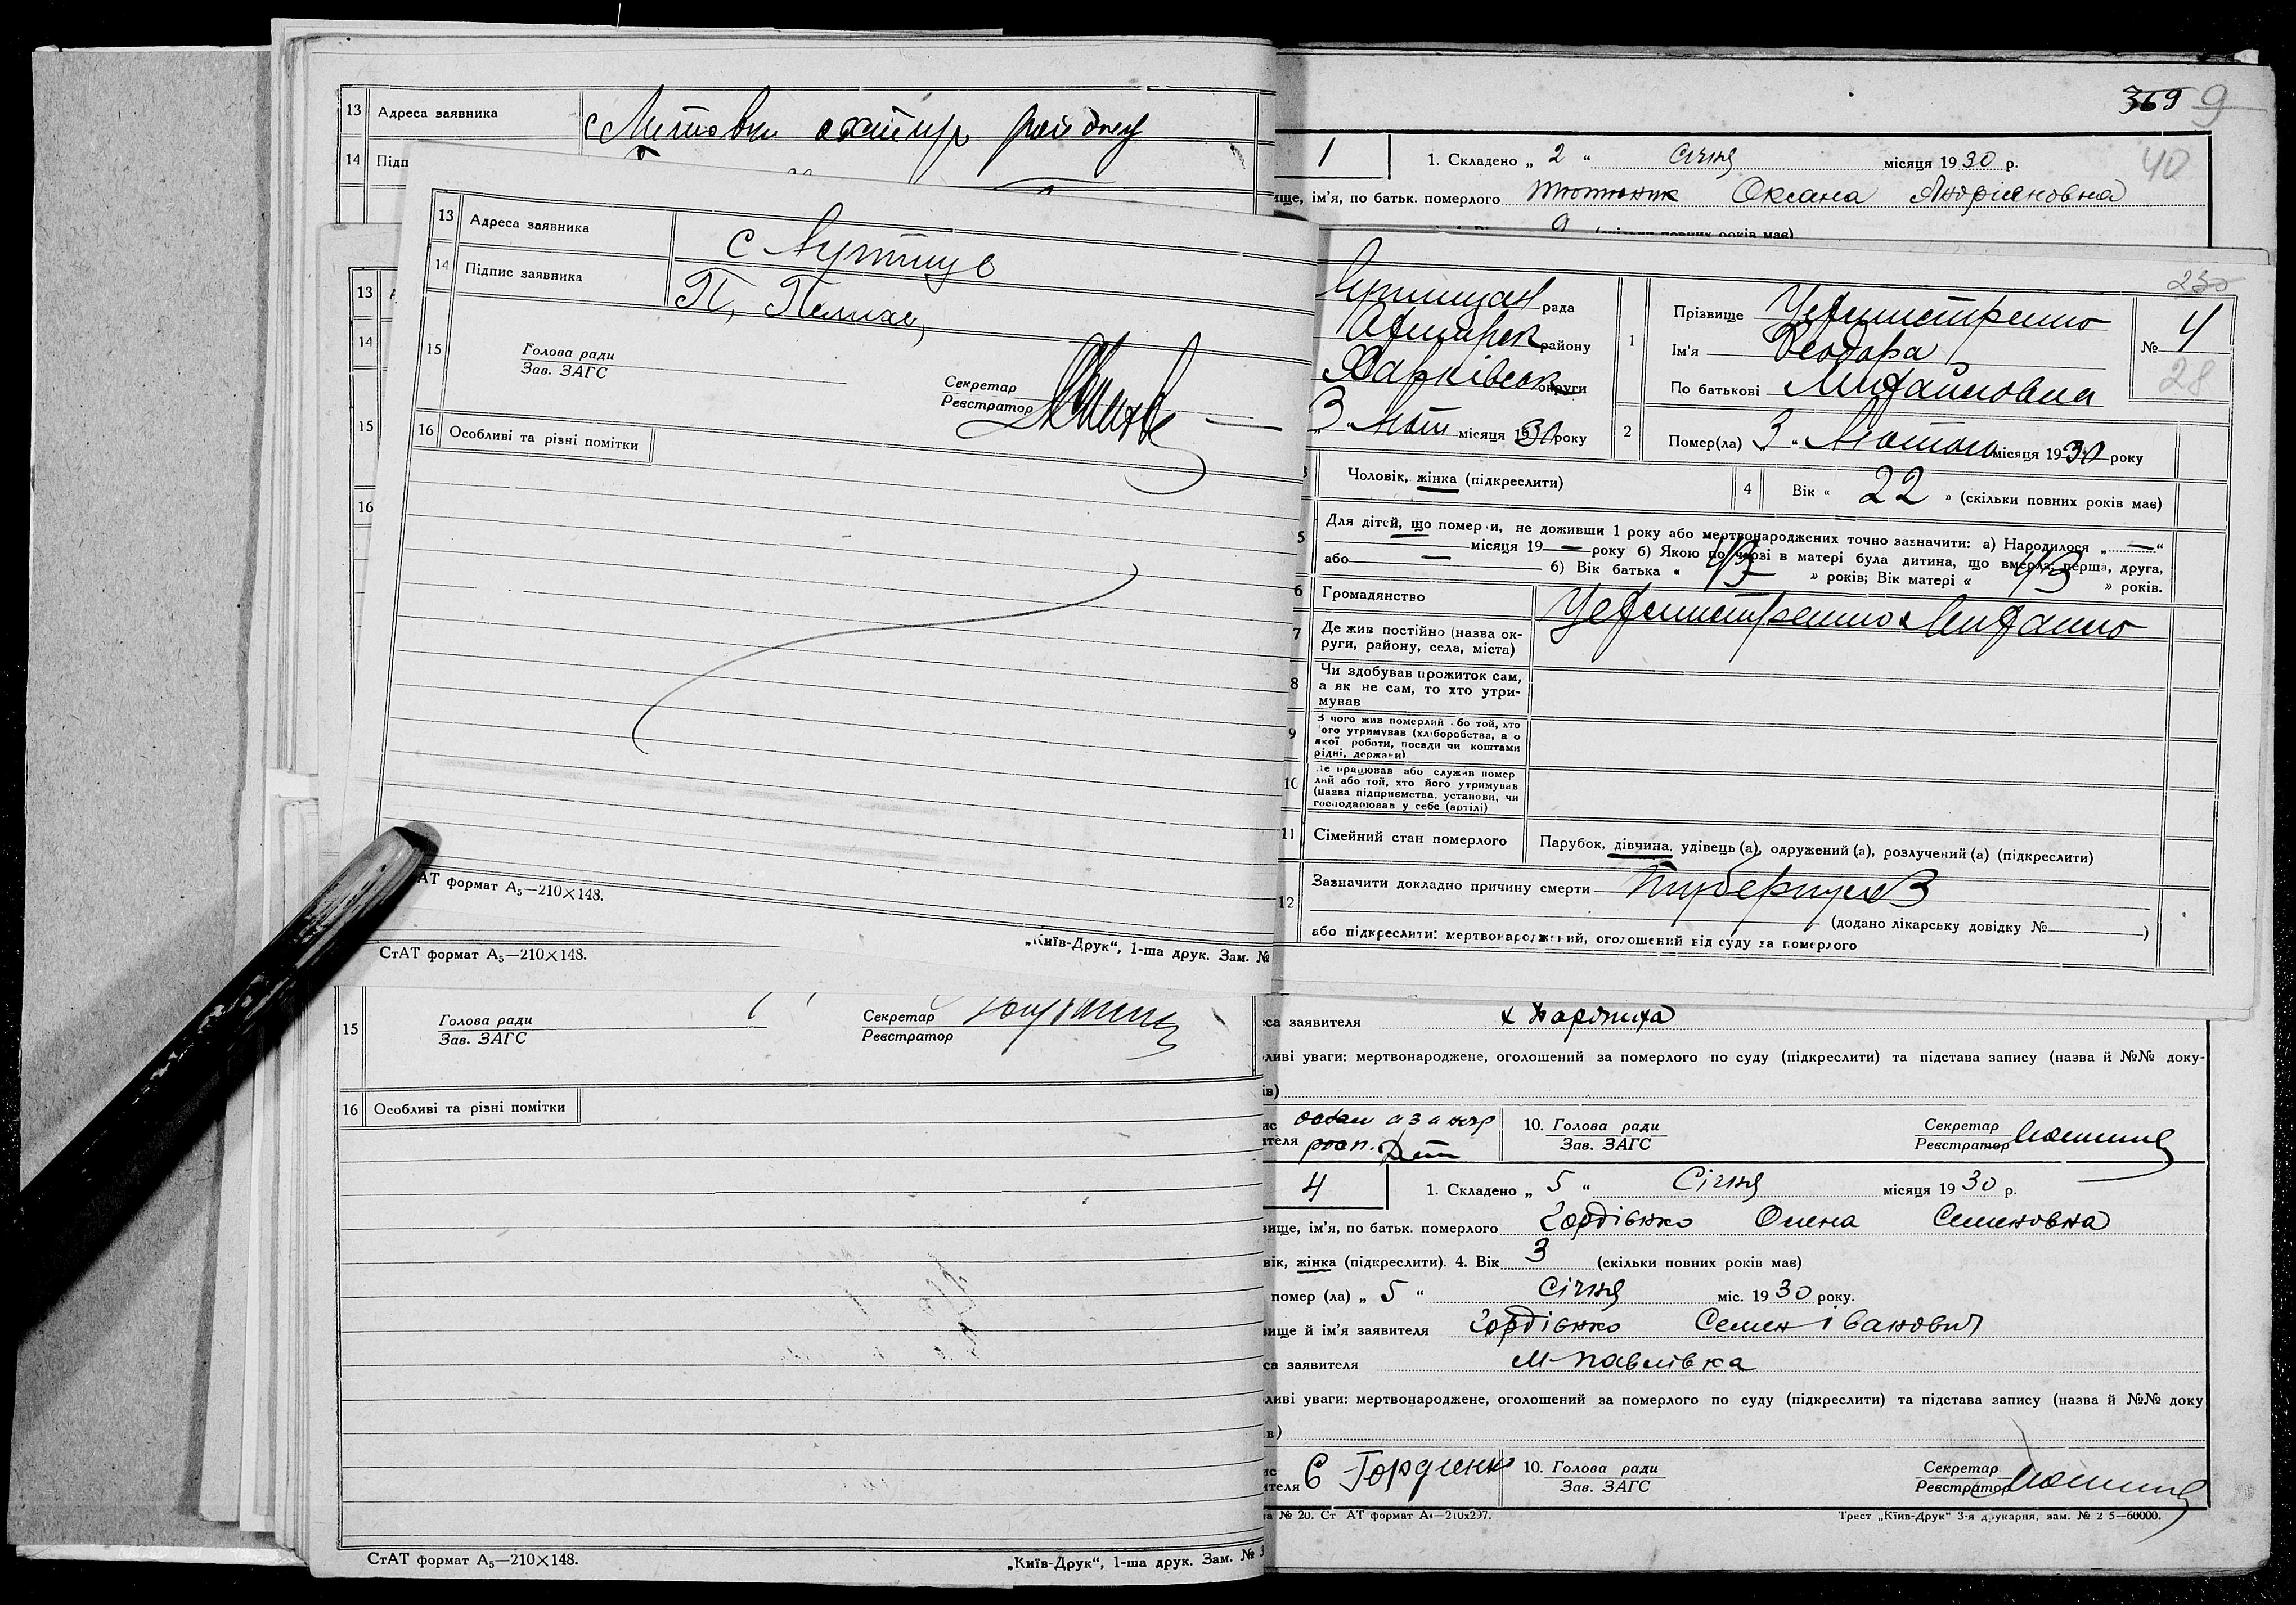 13 Адреса заявника с Литовки охтир району
14 Підп
13 Адреса заявника с Лутище
14 Підпис заявника П. Пелихо
15 Голова ради
Зав. ЗАГС
Секретар
Реєстратор
16 Особливі та різні помітки
АТ формат А₅—210×148.
13
14
15
16
СтАТ формат А₅—210×148.
„Київ-Друк“, 1-ша друк. Зам. №
15 Голова ради
Зав. ЗАГС
Секретар
Реєстратор
16 Особливі та різні помітки
СтАТ формат А₅—210×148.
„Київ-Друк“, 1-ша друк. Зам. №
369 9
40
1 1. Складено „ 2 “ січня місяця 1930 р.
ище, ім'я, по батьк. померлого Тютюник Оксана Андріяновна
9 (скільки повних років має)
230
рада
району
Харківськ округи
3 Лют місяця 1930 року
1 Прізвище
Ім'я Теодора
По батькові Михайловна
№ 4
28
2 Помер(ла) „ 3 “ Лютого місяця 1930 року
3 Чоловік, жінка (підкреслити)
4 Вік « 22 » (скільки повних років має)
5 Для дітей, що померли, не доживши 1 року або мертвонароджених точно зазначити: а) Народилося „ — “
— місяця 19 — року б) Якою по черзі в матері була дитина, що вмерла; перша, друга,
або — б) Вік батька « » років; Вік матері « » років.
6 Громадянство
7 Де жив постійно (назва ок-
руги, району, села, міста)
8 Чи здобував прожиток сам,
а як не сам, то хто утри-
мував
9 З чого жив померлий або той, хто
його утримував (хліборобства, а о
якої роботи, посади чи коштами
рідні, держави)
10 Де працював або служив помер
лий або той, хто його утримував
(назва підприємства, установи, чи
господарював у себе (артілі)
11 Сімейний стан померлого Парубок, дівчина, удівець (а), одружений (а), розлучений (а) (підкреслити)
12 Зазначити докладно причину смерти туберкулоз
(додано лікарську довідку № )
або підкреслити: мертвонароджений, оголошений від суду за померлого
са заявителя х
ливі уваги: мертвонароджене, оголошений за померлого по суду (підкреслити) та підстава запису (назва й №№ доку-
ів)
ис
ителя
10. Голова ради
Зав. ЗАГС
Секретар
Реєстратор
4 1. Складено „ 5 “ Січня місяця 1930 р.
вище, ім'я, по батьк. померлого Гордієнко Олена Семеновна
вік, жінка (підкреслити). 4. Вік 3 (скільки повних років має)
помер (ла) „ 5 “ Січня міс. 1930 року.
вище й ім'я заявителя Гордієнко Семен Іванович
са заявителя М-Павлівка
ливі уваги: мертвонароджене, оголошений за померлого по суду (підкреслити) та підстава запису (назва й №№ доку
ів)
ис
ителя С Гордиенко
10. Голова ради
Зав. ЗАГС
Секретар
Реєстратор
а № 20. Ст АТ формат А₄—210х297.
Трест „Київ-Друк“ 3-я друкарня, зам. № 2 5—60000.